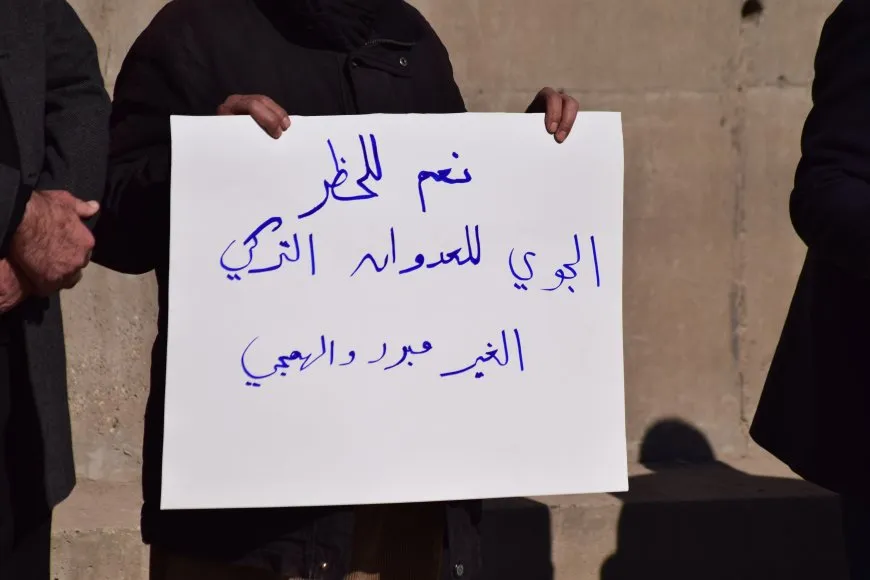 نعم للحظر
الجوي للعدوان التركي
الغير مبرر والهمجي